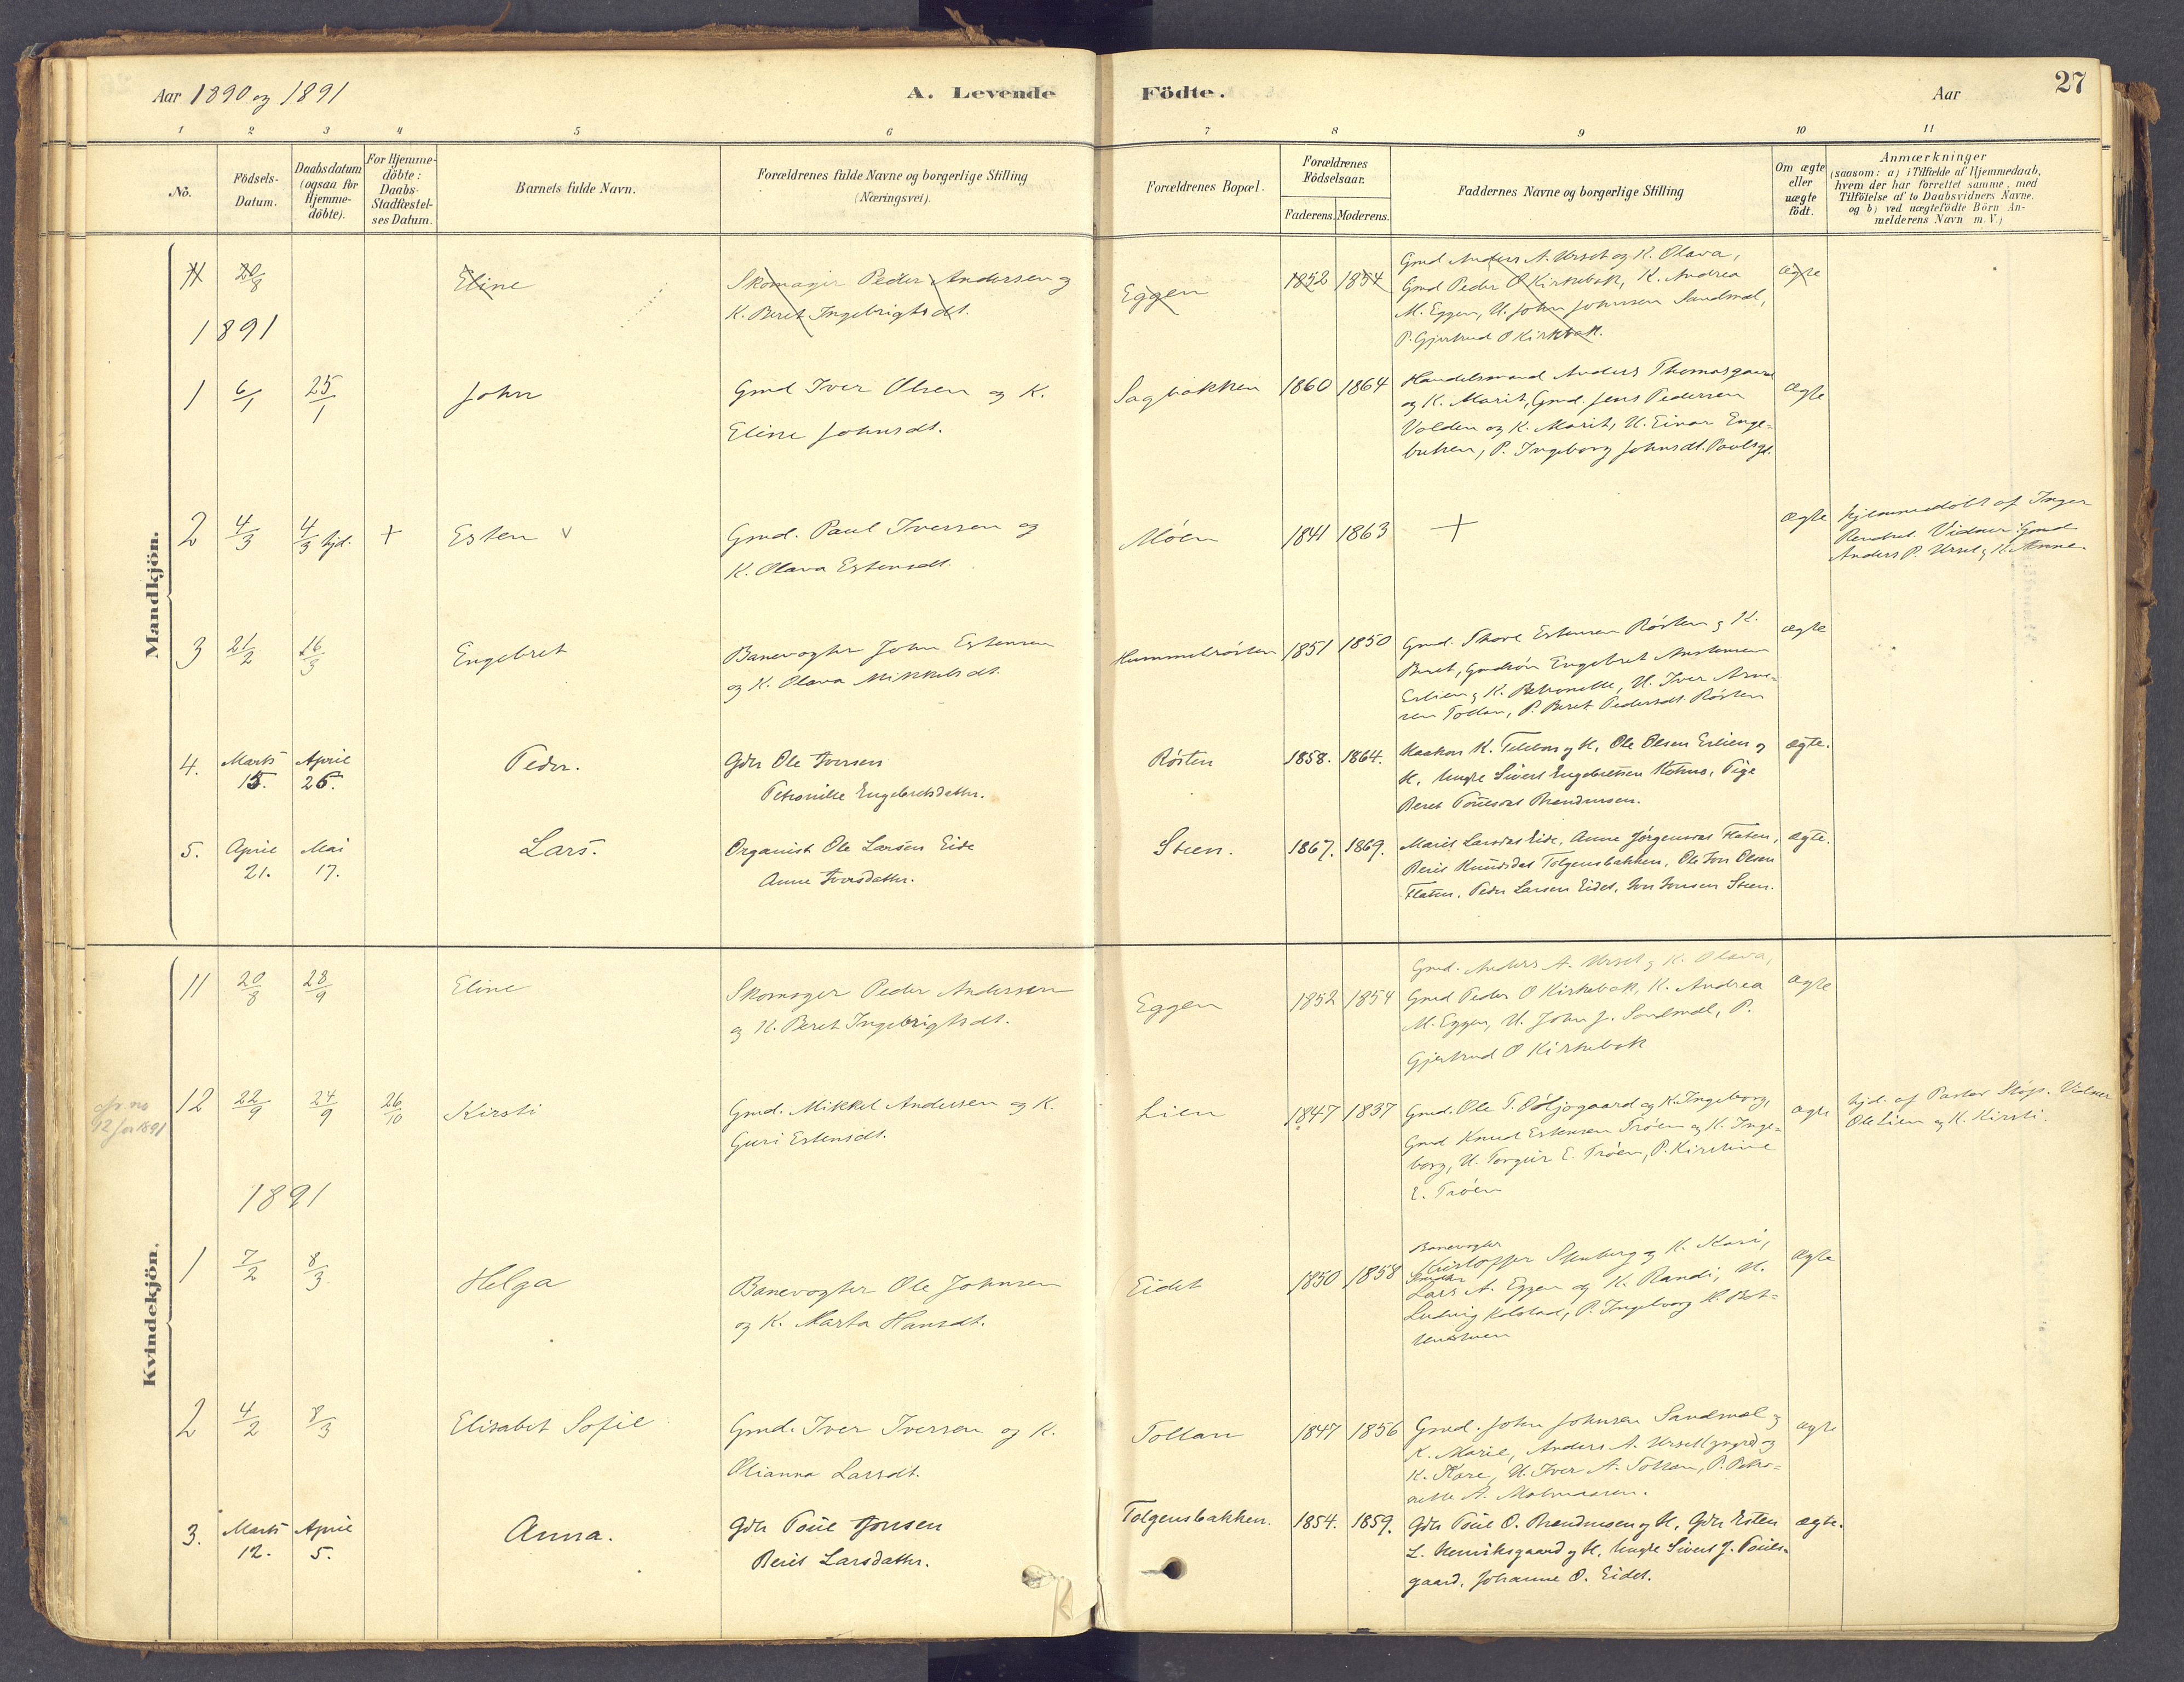 Aar 1890 og 1891
A. Levende
Födte.
Aar
27
1 2 3 4 5 6 7 8 9 10 11
No.
Födsels-
Datum.
Daabsdatum
(ogsaa for
Hjemme-
döbte).
For Hjemme-
döbte:
Daabs-
Stadfæstel-
ses Datum.
Barnets fulde Navn.
Forældrenes fulde Navne og borgerlige Stilling
(Næringsvei).
Forældrenes Bopæl.
Forældrenes
Födselsaar.
Faderens. Moderens.
Faddernes Navne og borgerlige Stilling
Om ægte
eller
uægte
födt.
Anmærkninger
(saasom: a) i Tilfælde af Hjemmedaab,
hvem der har forrettet samme, med
Tilföielse af to Daabsvidners Navne.
og b) ved uægtefödte Börn An-
melderens Navn m. V.)
Mandkjön.
11 20/8 Eline
Skomager Peder Andersen og
K. Beret Ingebrigtsdt.
Eggen 1852 1854
Gmd Anders A. Urset og K. Olava,
Gmd Peder O Kirkebak, K. Andrea
M. Eggen, U. John Johnsen Sandmæl,
P. Gjertrud O Kirkbak.
ægte
1891
1 6/1 25/1 John
Gmd Iver Olsen og K.
Eline Johnsdt.
Sagbakken 1860 1864
Handelsmand Anders Thomasgaard
og K. Marit, Gmd. Jens Pedersen
Volden og K. Marit, U. Einar Enge-
bretsen, P. Ingeborg Johnsdt. Paulsgd.
ægte
2 4/3 4/3 hjd. + Esten v
Gmd. Paul Iversen og
K. Olava Estensdt.
Moen 1841 1863 +
ægte
Hjemmedøbt af Inger
Vidner: Gmd
Anders P. Urset og K. Anne
3 21/2 16/3 Engebret
Banevogter John Estensen
og K. Olava Mikkelsdt.
Hummelrösten 1851 1850
Gmd. Thore Estensen Rösten og K.
Beret, Engebret
Erlien og K. Petronelle, U. Iver Arne-
sen Tollan, P. Beret Pedersdt Rösten
ægte
4. Marts 15. April 26. Peder.
Gdr Ole Iversen
Petronille Engebretsdatter.
Rösten 1858. 1864.
Haakon K. og K. Ole Olsen Erlien og
K. Ungk Sivert Engebretsen, Pige
Beret
ægte.
5. April 21. Mai 17. Lars.
Organist Ole Larsen Eide
Anne Iversdatter.
Steen. 1867. 1869.
Marit Larsdat Eide, Anne Jörgensdat Flaten,
Berit Knudsdat Tolgensbakken, Ole Jon Olsen
Flaten. Peder Larsen Eidet. Steen.
ægte.
Kvindekjön.
11 20/8 28/9 Eline
Skomager Peder Andersen
og K. Beret Ingebrigtsdt.
Eggen 1852 1854
Gmd. Anders A. Urset og K. Olava,
Gmd Peder O Kirkebak, K. Andrea
M. Eggen, U. John J. Sandmæl, P.
Gjertrud O Kirkebak
ægte
12 for 1891
12 22/9 24/9 26/10 Kirsti
Gmd. Mikkel Andersen og K.
Guri Estensdt.
Lien 1847 1837
Gmd. Ole T. og K. Ingeborg,
Gmd Knud Estensen Tröen og K. Inge-
borg, U. Torgeir E. Tröen, P. Kirstine
E. Tröen
ægte
hjd. af Pastor Vidner
Ole Lien og K. Kirsti.
1891
1 7/2 8/3 Helga
Banevogter Ole Johnsen
og K. Marta Hansdt.
Eidet 1850 1858
Banevogter
Kristoffer Stenberg og K. Kari,
Lars A. Eggen og K. Randi, U.
Ludvig Kolstad, P. Ingeborg
ægte
2 4/2 8/3 Elisabet Sofie
Gmd. Iver Iversen og K.
Olianna Larsdt.
Tollan 1847 1856
Gmd. John Johnsen Sandmæl og
K. Marie, Anders A. Urset og
K. Kare, U. Iver A. Tollan, P. Petro-
nelle A.
ægte
3. Marts 12. April 5. Anna.
Gdr Poul Jonsen
Berit Larsdatter.
Tolgensbakken. 1854. 1859.
Gdr Poul O. og K. Gdr Esten
L. Henriksgaard og K. Ungk Sivert J. Pouls-
gaard. Johanne O. Eidet.
ægte.